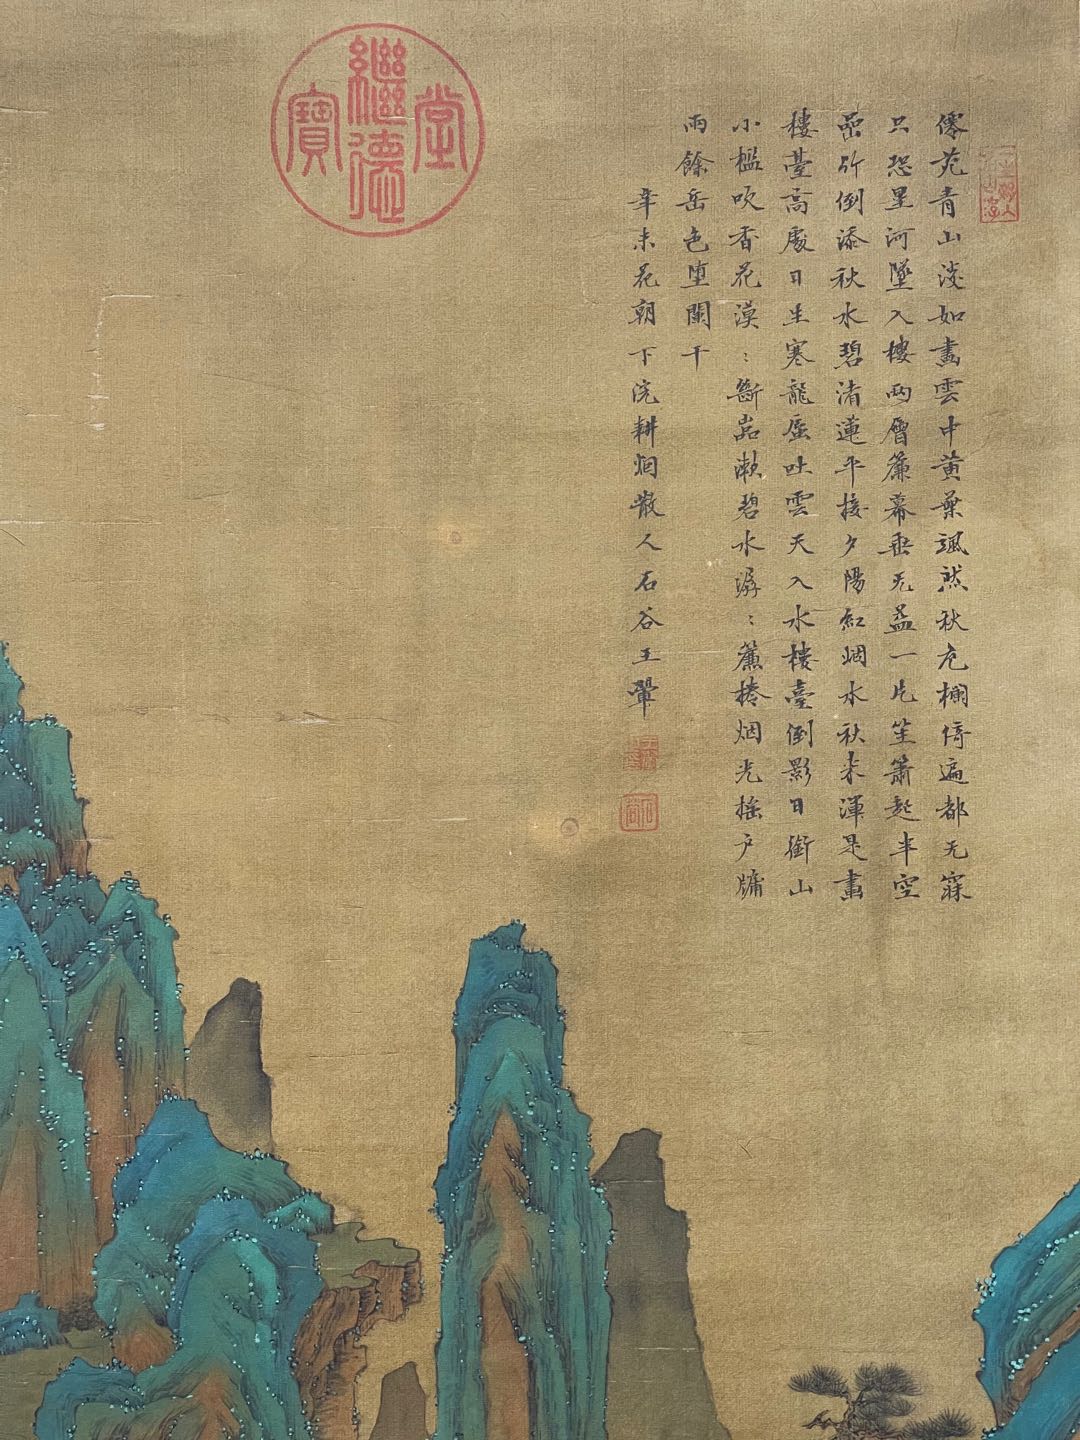 僊苑青山淡如畫雲中黃葉颯然秋危欄倚遍都无寐
只恐星河墜入樓兩層簾幕垂无盍一片笙簫起半空
罨竹倒添秋水碧渚蓮平接夕陽紅烟水秋来渾是畫
樓臺高處日生寒龍盧吐雲天入水樓臺倒影日銜山
小檻吹香花漠〻斷嵓漱碧水潺〻簾捲烟光搖戶牖
雨餘岳色墮闌干
辛未花朝下浣耕烟散人石谷王翬
繼德堂寶
石谷